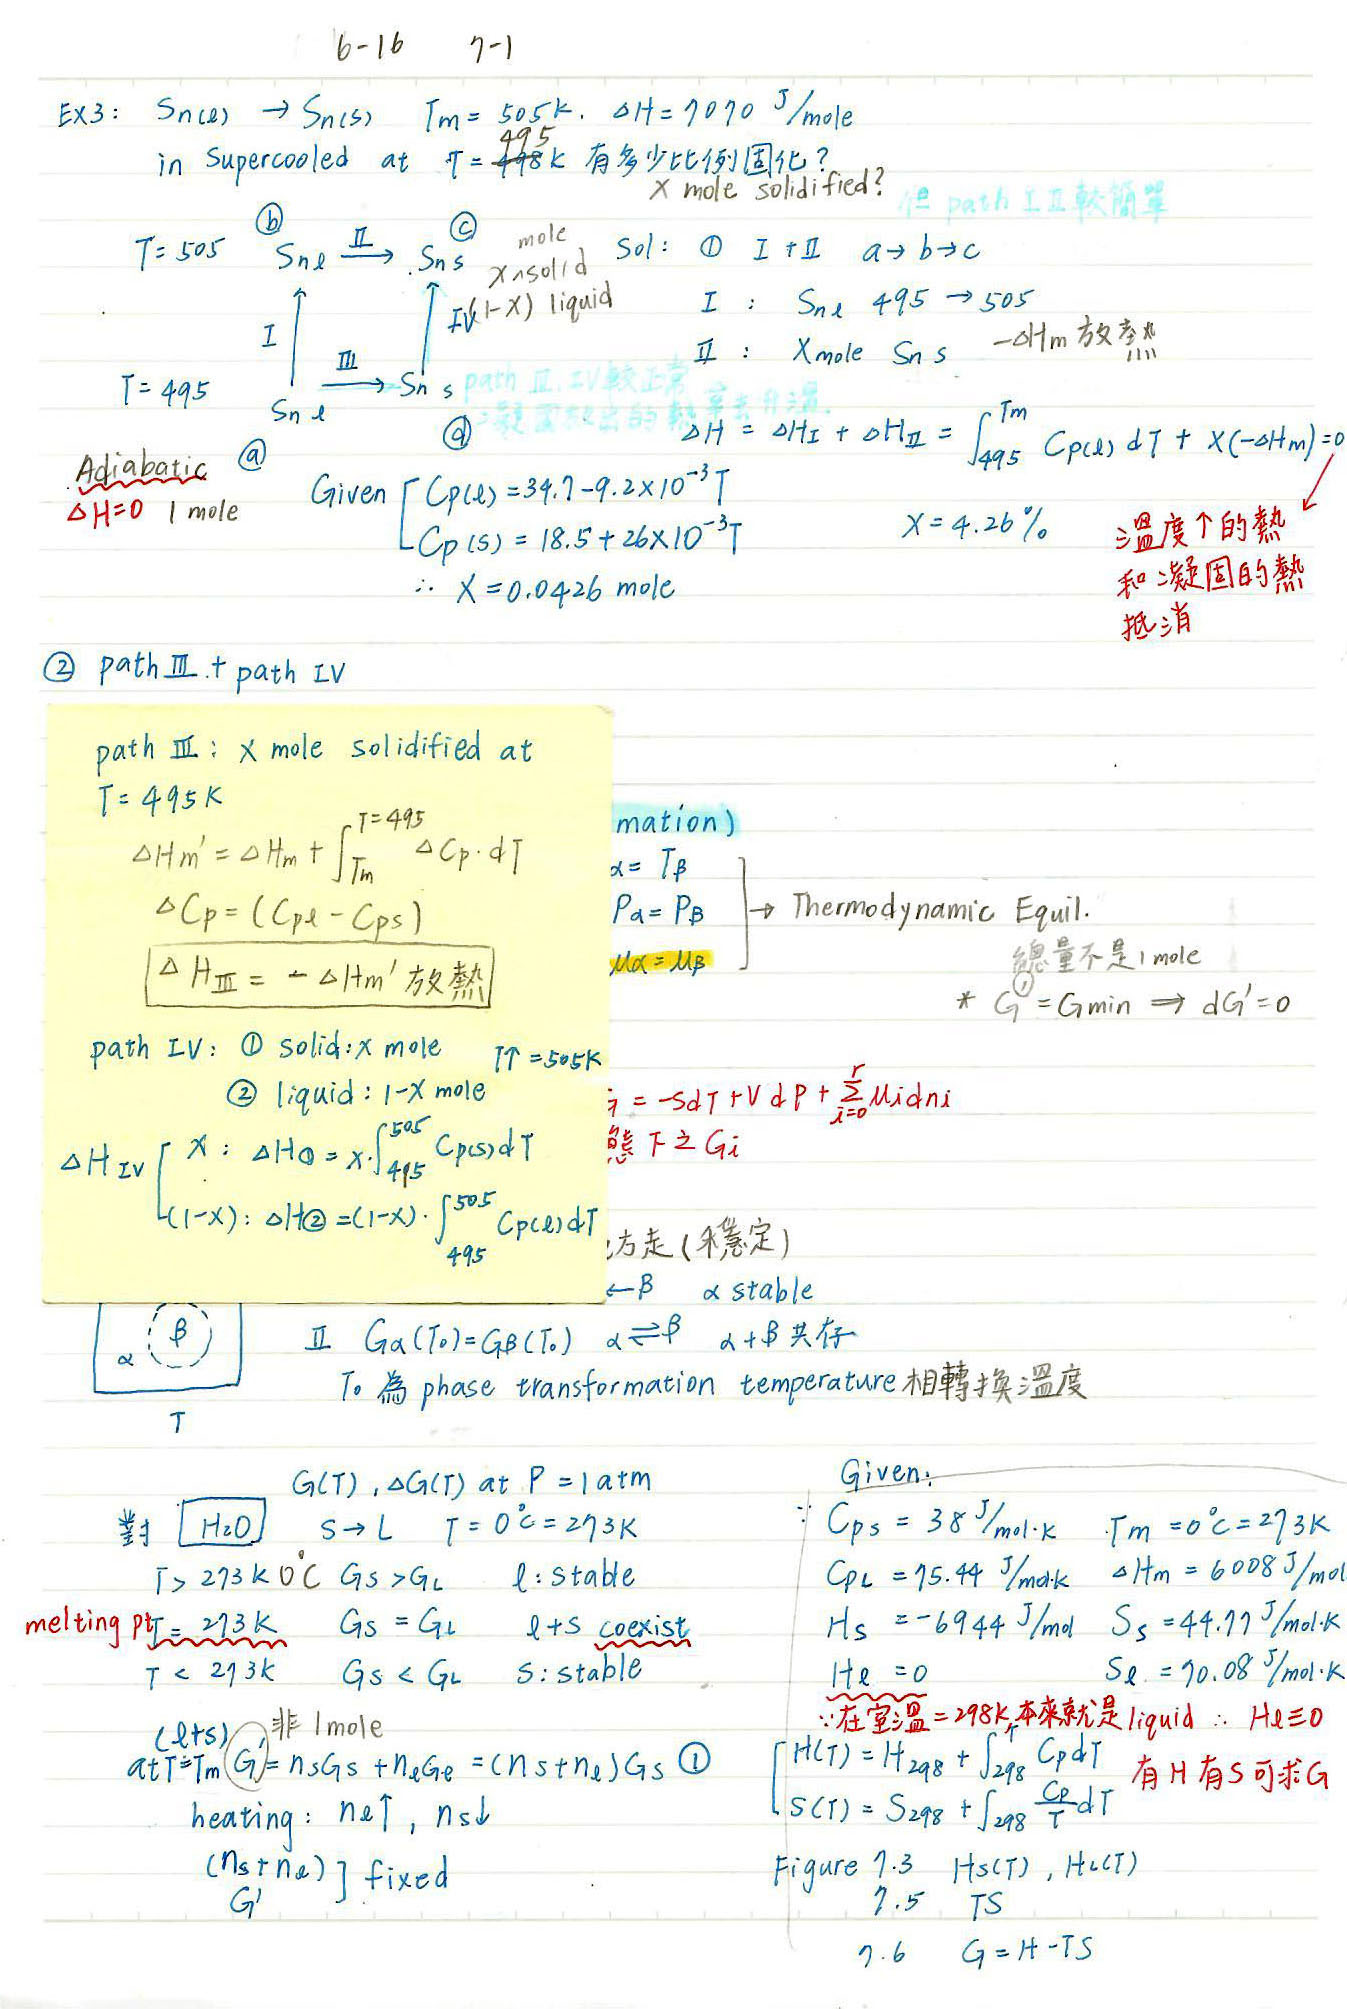 6-16 7-1
EX3: Sn(l) → Sn(s) Tm = 505K. ΔH = 7070 J/mole
in supercooled at T = 495 K 有多少比例固化?
X mole solidified?
但 path I II 較簡單
T = 505 ⓑ Sn l II→ ⓒ Sn s
mole
X solid
(1-X) liquid
I III IV
T = 495 Sn l → Sn s
ⓐ ⓓ
path III. IV 較正常
Sol: ① I + II a→b→c
I : Sn l 495 → 505
II : X mole Sn s -ΔHm 放熱
ΔH = ΔH_I + ΔH_II = ∫_495^Tm Cp(l) dT + X(-ΔHm) = 0
Adiabatic
ΔH=0 1 mole
Given [ Cp(l) = 34.7 - 9.2×10⁻³T
Cp(s) = 18.5 + 26×10⁻³T
∴ X = 0.0426 mole
X = 4.26%
溫度↑的熱
和凝固的熱
抵消
② path III. + path IV
path III : X mole solidified at
T = 495K
ΔHm' = ΔHm + ∫_Tm^T=495 ΔCp·dT
ΔCp = (Cpl - Cps)
ΔH_III = - ΔHm' 放熱
path IV: ① solid: x mole T↑ = 505K
② liquid: 1-X mole
ΔH_IV [ X : ΔH① = x·∫_495^505 Cp(s)dT
(1-X) : ΔH② = (1-X)·∫_495^505 Cp(l)dT
mation)
α = Tβ
Pα = Pβ → Thermodynamic Equil.
μα = μβ
總量不是1mole
* G' = Gmin ⇒ dG' = 0
= -SdT + VdP + Σ_{i=0}^r μidni
態下之Gi
方走(穩定)
←β α stable
β
α
T
II Gα(T₀) = Gβ(T₀) α⇌β α+β 共存
T₀ 為 phase transformation temperature 相轉換溫度
G(T), ΔG(T) at P = 1 atm
對 H₂O S→L T = 0°C = 273K
T > 273K 0°C Gs > GL l : stable
melting pt T = 273K Gs = GL l+s coexist
T < 273K Gs < GL s : stable
(l+s) 非 1mole
at T=Tm G' = nsGs + nlGl = (ns+nl)Gs ①
heating : nl↑, ns↓
(ns+nl)
G' ] fixed
Given:
∵ Cps = 38 J/mol·K Tm = 0°C = 273K
CpL = 75.44 J/mol·K ΔHm = 6008 J/mol
Hs = -6944 J/mol Ss = 44.77 J/mol·K
Hl = 0 Sl = 70.08 J/mol·K
∵在室溫=298K,本來就是liquid ∴ Hl≡0
[ H(T) = H₂₉₈ + ∫_298^T Cp dT
S(T) = S₂₉₈ + ∫_298 Cp/T dT
有H有S可求G
Figure 7.3 Hs(T), HL(T)
7.5 TS
7.6 G = H - TS